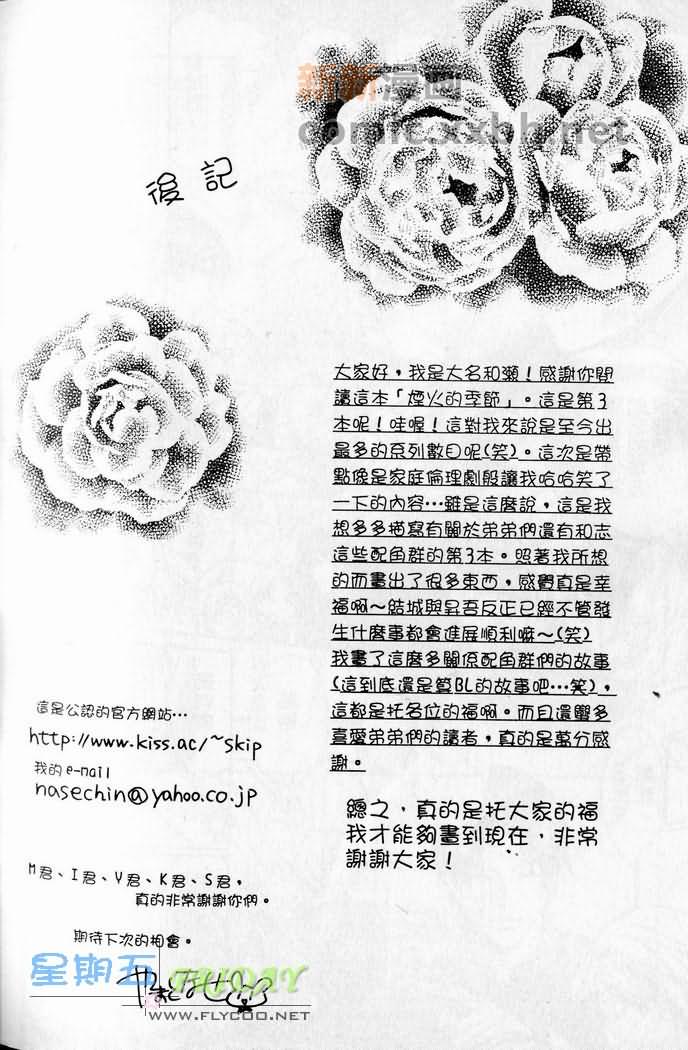 新新漫画
comicxxbh.net
後記
大家好，我是大名和瀨！感謝你閱
讀這本「煙火的季節」。這是第3
本呢！哇喔！這對我來說是至今出
最多的系列數目呢(笑)。這次是帶
點像是家庭倫理劇般讓我哈哈笑了
一下的內容…雖是這麼說，這是我
想多多描寫有關於弟弟們還有和志
這些配角群的第3本。照著我所想
的而畫出了很多東西，感覺真是幸
福啊～結城與昇吾反正已經不管發
生什麼事都會進展順利嘛～(笑)
我畫了這麼多關係配角群們的故事
(這到底還是算BL的故事吧…笑)，
這都是托各位的福啊。而且還蠻多
喜愛弟弟們的讀者，真的是萬分感
謝。
總之，真的是托大家的福
我才能夠畫到現在，非常
謝謝大家！
這是公認的官方網站…
http://www.kiss.ac/~skip
我的e-mail
nasechin@yahoo.co.jp
M君、I君、Y君、K君、S君，
真的非常謝謝你們。
期待下次的相會。
星期五 FRIDAY
WWW.FLYCOO.NET